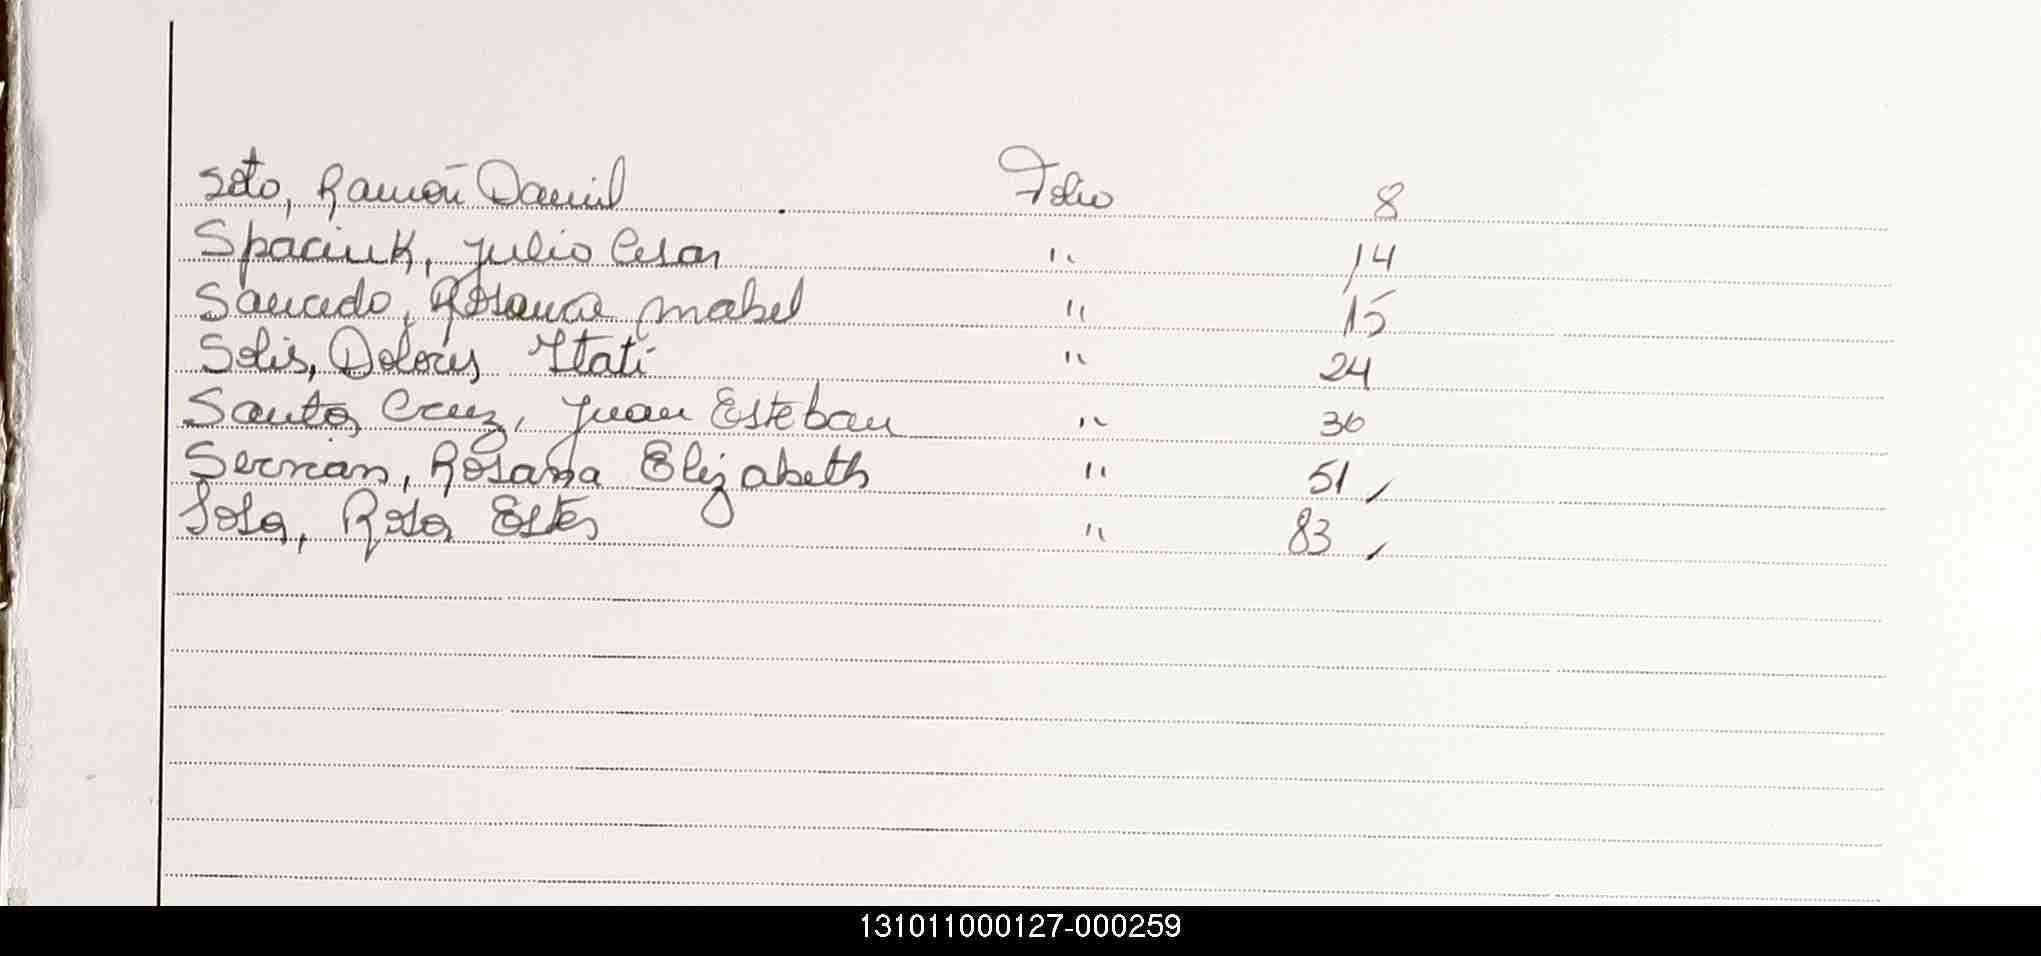 Soto, Ramón Daniel Folio 8
Spaciuk, Julio Cesar " 14
Saucedo, Rosana Mabel " 15
Solis, Dolores Itati " 24
Santa Cruz, Juan Esteban " 36
Sernian, Rosana Elizabeth " 51
Sosa, Rosa Ester " 83
131011000127-000259